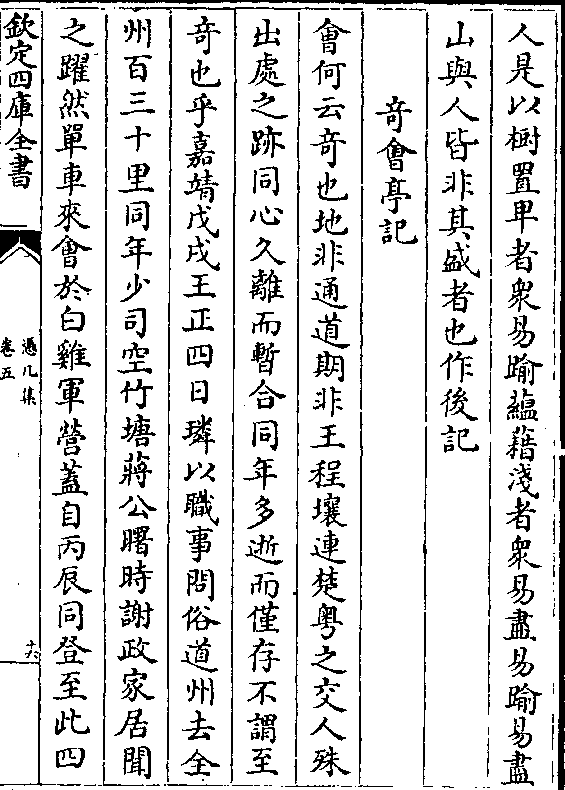 人是以樹置卑者衆易踰蘊藉淺者衆易盡易踰易盡
山與人皆非其盛者也作後記
奇會亭記
會何云奇也地非通道期非王程壤連楚粵之交人殊
出處之跡同心久離而暫合同年多逝而僅存不謂至
奇也乎嘉靖戊戌王正四日璘以職事問俗道州去全
州百三十里同年少司空竹塘蔣公曙時謝政家居聞
之躍然單車來會於白雞軍營蓋自丙辰同登至此四
欽定四庫全書
憑几集
卷五
十六